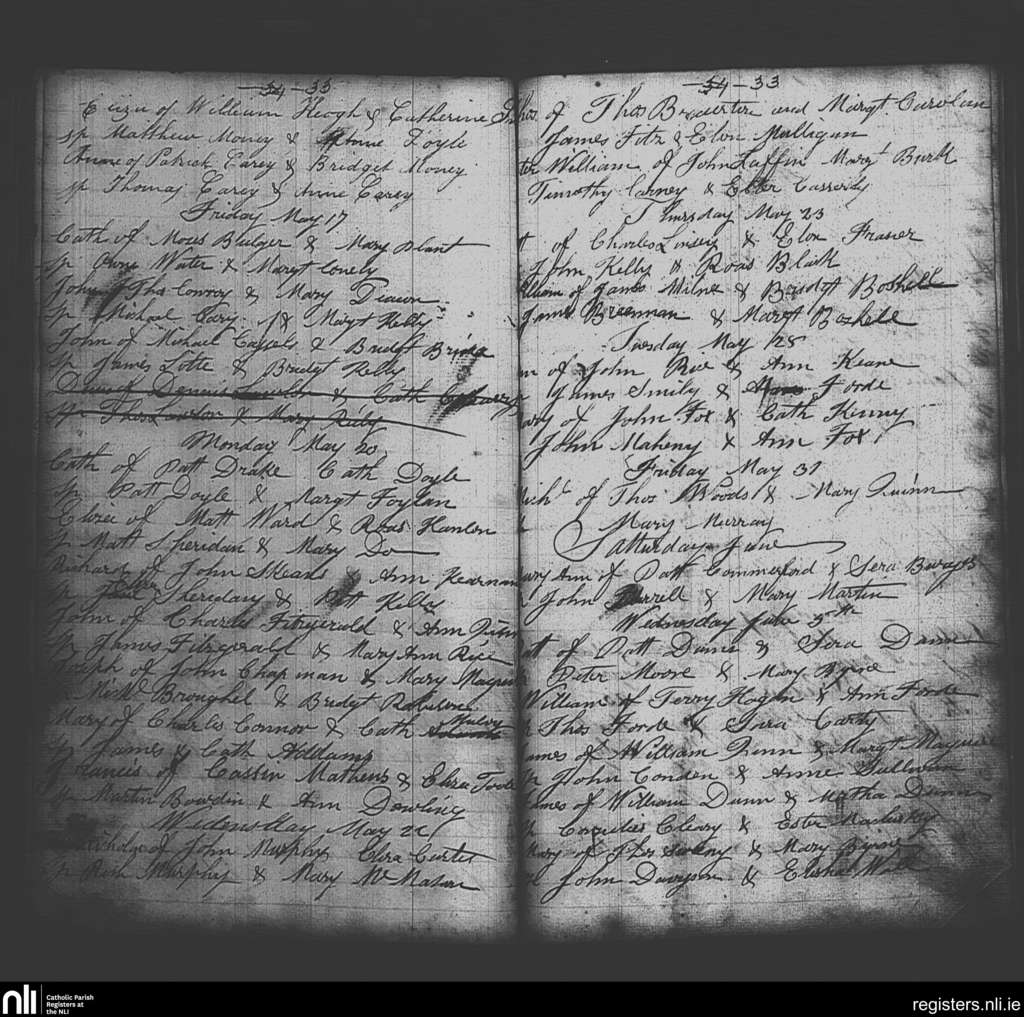 34-33
Eliza of William Keogh & Catherine
sp Matthew Money & Anne Foyle
Anne of Patrick Carey & Bridget Money
sp Thomas Carey & Anne Carey
Friday May 17
Cath of Moses Bulger & Mary Plant
sp Owne Water & Margt Conely
John of Thos Conroy & Mary Deacon
sp Michael Cary & Margt Kelly
John of Michael Cassels & Bridgt
sp James Lotte & Bridgt Kelly
Dennis Lawlor & Cath
sp Thos Lawlor & Mary Riley
Monday May 20
Cath of Patt Drake Cath Doyle
sp Patt Doyle & Margt Foylan
Elizei of Matt Ward & Roas Hanlon
sp Matt Sheridan & Mary Do
Richard of John Means & Ann Kearnan
sp Sheredan & Patt Kelly
John of Charles Fitzgerald & Ann
sp James Fitzgerald & Mary Ann Rice
Joseph of John Chapman & Mary
sp Michl Broughel & Bridgt Robinson
Mary of Charles Connor & Cath Mulvey
sp James & Cath Addams
Francis of Cassin Mathews & Eliza Toole
sp Martin Bowdin & Ann Dowling
Widensday May 22
of John Murphy Eliza Curtis
sp Murphy & Mary
34-33
of Thos and Margt Carolan
James Fitz & Elon Mulligan
William of John Laffin Margt Burk
Timothy Carney & Ester Casserly
Thursday May 23
of Charles Linsey & Elon Frasier
John Kelly & Roas Black
of James Milne & Bridgt Boshell
James Breenman & Margt Boshell
Tuesday May 28
of John Rice & Ann Keane
James Smily & Forde
of John Fox & Cath Kinny
John Maheny & Ann Fox
Friday May 31
of Thos Woods & Mary Quinn
Mary Murray
Satturday June
Mary Ann of Patt Commerford & Sera
John & Mary Martin
Wednesday June 5th
of Patt Dunn & Sera Dunn
Peter Moore & Mary Byrne
William of Terry Hogan & Ann Forde
Thos Forde & Sara Carty
James of William Finn & Margt Maguire
John Condon & Anne Sullivan
James of William Dunn & Martha Dunn
Cornelius Cleary & Ester
Mary of Thos & Mary Byrne
John & Wall
nli
Catholic Parish
Registers at
the NLI
registers.nli.ie